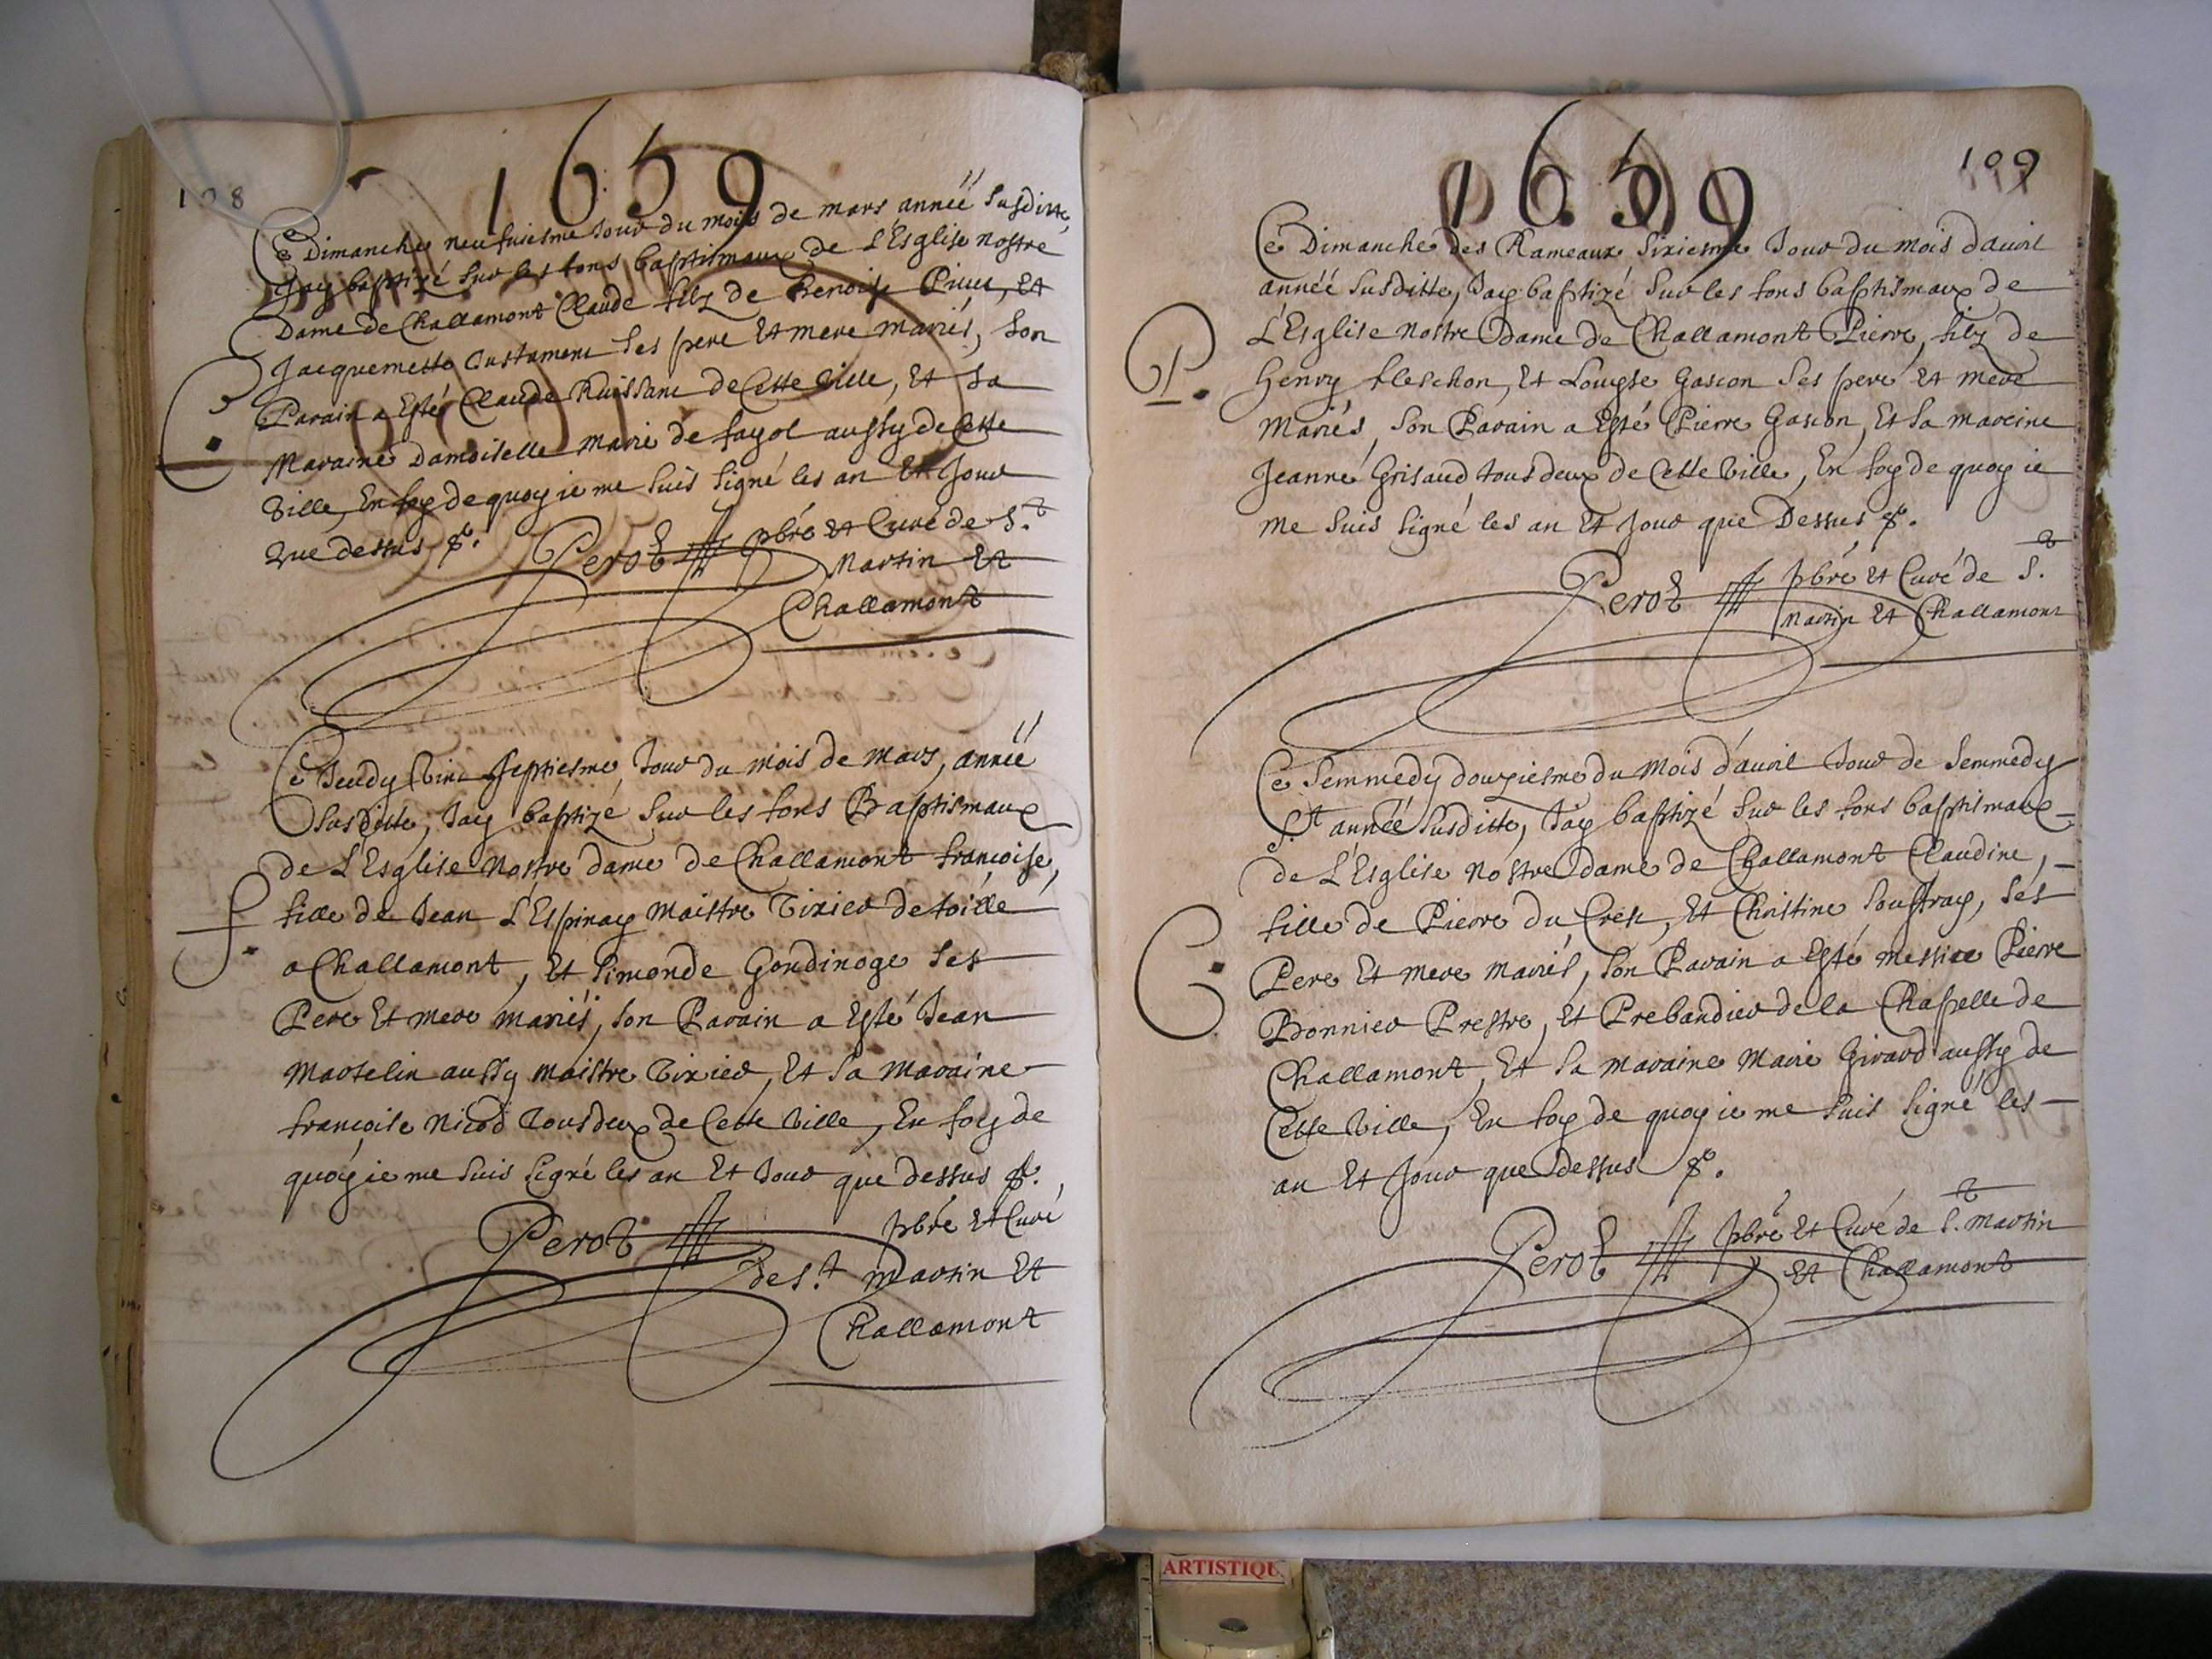 108
1659
Ce Dimanche neufuiesme Jour du mois de mars année susditte,
Jay baptizé sur les fons baptismaux de L'Esglise nostre
Dame de Challamont Claude filz de Benoist et
Jacquemette ses pere Et mere mariés, son
C.
Parain a Esté Claude Ruissane de Cette ville, Et sa
Maraine Damoiselle marie de fayol aussy de Cette
Ville, En foy de quoy ie me suis signé les an Et Jour
que dessus &.
Perot pbre et Curé de S.t
Martin Et
Challamont
Ce Jeudy Vint septiesme Jour du mois de mars, année
susditte, Jay baptizé sur les fons Baptismaux
de L'Esglise nostre dame de Challamont francoise,
fille de Jean L'Espinay maistre Tixier de toille
f.
a Challamont, Et simonde Gondinoge ses
Pere Et mere mariés, son Parain a Esté Jean
Martelin aussy maistre Tixier, Et sa Maraine
francoise Nicod Tous deux de Cette Ville, En foy de
quoy ie me suis signé les an Et Jour que dessus &.
Perot pbre et Curé
de S.t Martin Et
Challamont
109
1659
Ce Dimanche des Rameaux sixiesme Jour du mois d'auril
année susditte, Jay baptizé sur les fons baptismaux de
L'Esglise nostre Dame de Challamont Pierre, filz de
P.
Henry fleschon, Et Louyse Gascon ses pere Et mere
Mariés, son Parain a Esté Pierre Gascon, Et sa mareine
Jeanne Grisaud tous deux de Cette Ville, En foy de quoy ie
me suis signé les an Et Jour que Dessus &.
Perot pbre et Curé de S.t
Martin Et Challamont
Ce semmedy douziesme du mois d'auril Jour de semmedy
S.t année susditte, Jay baptizé sur les fons baptismaux
de L'Esglise nostre dame de Challamont Claudine,
fille de Pierre du Crest, Et Christine souffray, ses
C.
Pere Et mere mariés, son Parain a Esté messire Pierre
Bonnier Prestre, Et Prebandier de la Chapelle de
Challamont, Et sa maraine Marie Girard aussy de
Cette Ville, En foy de quoy ie me suis signé les
an Et Jour que Dessus &.
Perot pbre et Curé de S.t Martin
Et Challamont
ARTISTIQU